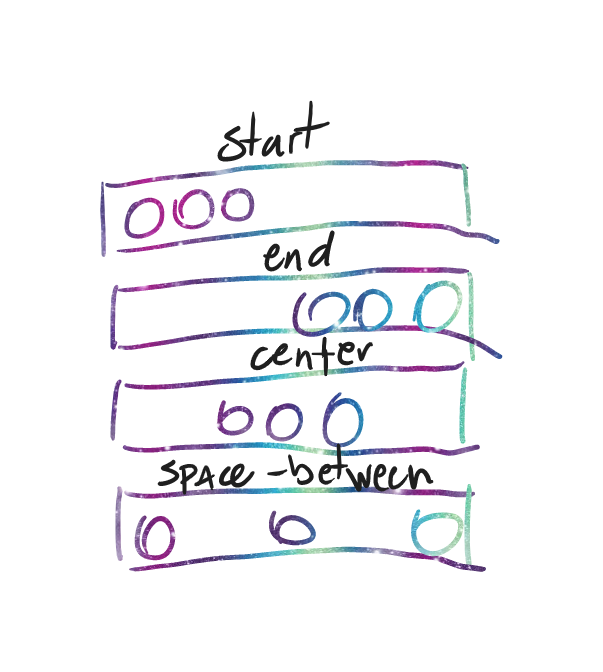 start
end
center
space-between